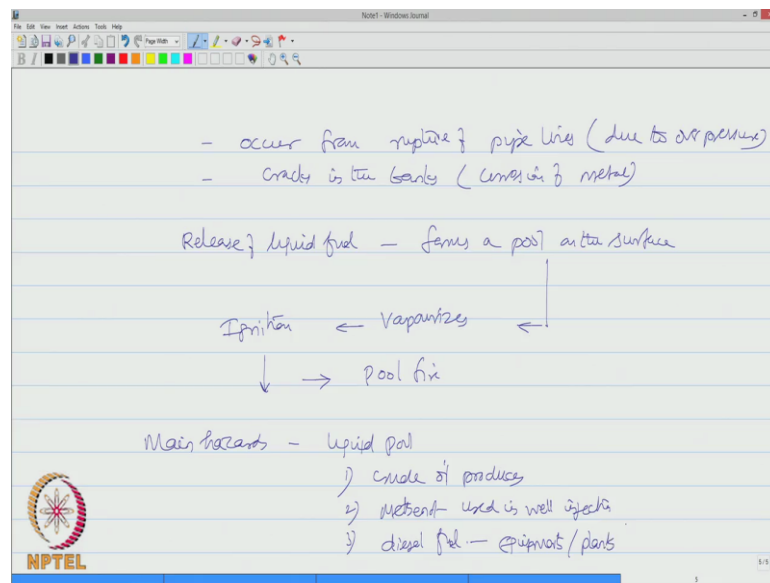 Note1 - Windows Journal
File Edit View Insert Actions Tools Help
Page Width
B I
- occur from rupture of pipe lines (due to over pressure)
- cracks in the tanks (corrosion of metal)
Release of liquid fuel - forms a pool on the surface
Ignition ← Vapourizes ←
↓ → Pool fire
Main hazards - liquid pool
1) crude oil produces
2) used in well injection
3) diesel fuel - equipments/plants
NPTEL
5/5
5